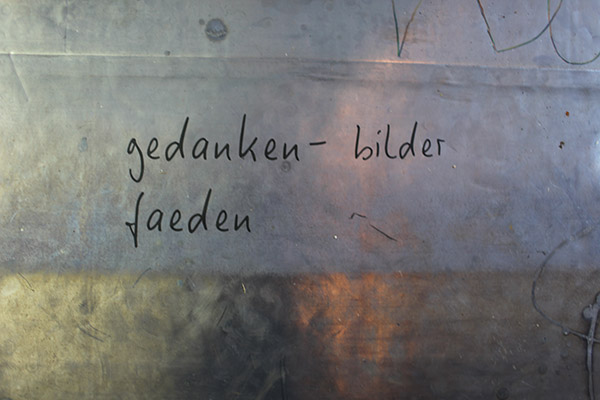 gedanken- bilder
faeden